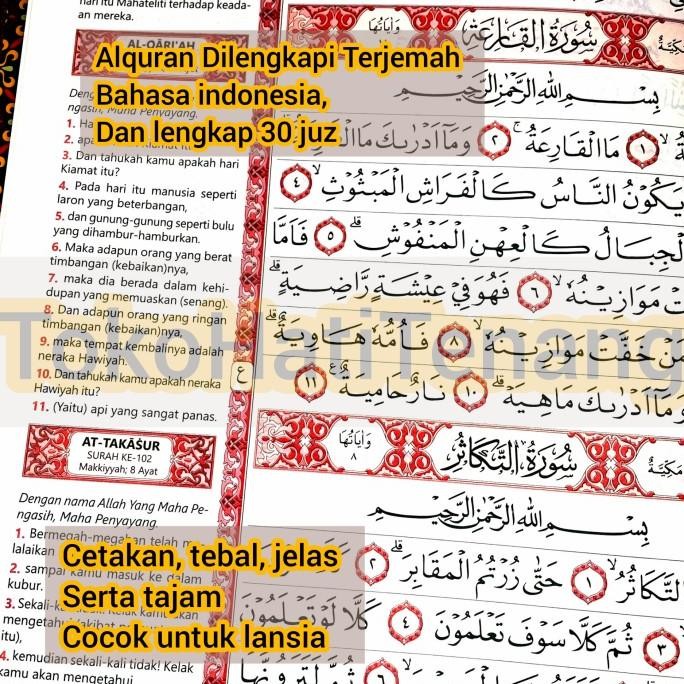 hari itu Mahateliti terhadap keada-
an mereka.
AL-QĀRI'AH
Alquran Dilengkapi Terjemah
Bahasa indonesia,
Dan lengkap 30 juz
ngasih, Maha Penyayang.
3. Dan tahukah kamu apakah hari
Kiamat itu?
4. Pada hari itu manusia seperti
laron yang beterbangan,
5. dan gunung-gunung seperti bulu
yang dihambur-hamburkan.
6. Maka adapun orang yang berat
timbangan (kebaikan)nya,
7. maka dia berada dalam kehi-
dupan yang memuaskan (senang).
8. Dan adapun orang yang ringan
timbangan (kebaikan)nya,
9. maka tempat kembalinya adalah
neraka Hawiyah.
10. Dan tahukah kamu apakah neraka
Hawiyah itu?
11. (Yaitu) api yang sangat panas.
TokoHatiTenang
AT-TAKĀṠUR
SURAH KE-102
Makkiyyah; 8 Ayat
Dengan nama Allah Yang Maha Pe-
ngasih, Maha Penyayang.
1. Bermegah-megahan telah
lalaikan
2. sampai kamu masuk ke dalam
kubur.
3.
mengetahui
itu),
4. kemudian sekali-kali tidak! Kelak
kamu akan mengetahui.
Cetakan, tebal, jelas
Serta tajam
Cocok untuk lansia
سُورَةُ الْقَارِعَةِ
وَاٰيَاتُهَا
بِسْمِ اللّٰهِ الرَّحْمٰنِ الرَّحِيْمِ
١ مَا الْقَارِعَةُ ۚ ٢ وَمَآ اَدْرٰىكَ مَا
يَكُوْنُ النَّاسُ كَالْفَرَاشِ الْمَبْثُوْثِ ۙ ٤
الْجِبَالُ كَالْعِهْنِ الْمَنْفُوْشِ ۗ ٥ فَاَمَّا
مَوَازِيْنُهٗ ۙ ٦ فَهُوَ فِيْ عِيْشَةٍ رَّاضِيَةٍ ۗ
مَنْ خَفَّتْ مَوَازِيْنُهٗ ۙ ٨ فَاُمُّهٗ هَاوِيَةٌ ۗ
وَمَآ اَدْرٰىكَ مَا هِيَهْ ۗ ١٠ نَارٌ حَامِيَةٌ ࣖ ١١
ع
مَكِّيَّةٌ سُورَةُ التَّكَاثُرِ وَاٰيَاتُهَا ٨
بِسْمِ اللّٰهِ الرَّحْمٰنِ الرَّحِيْمِ
التَّكَاثُرُ ۙ ١ حَتّٰى زُرْتُمُ الْمَقَابِرَ ۗ ٢
٣ ثُمَّ كَلَّا سَوْفَ تَعْلَمُوْنَ ٤ كَلَّا لَوْ تَعْلَمُوْنَ
ثُمَّ لَتَرَوُنَّهَا